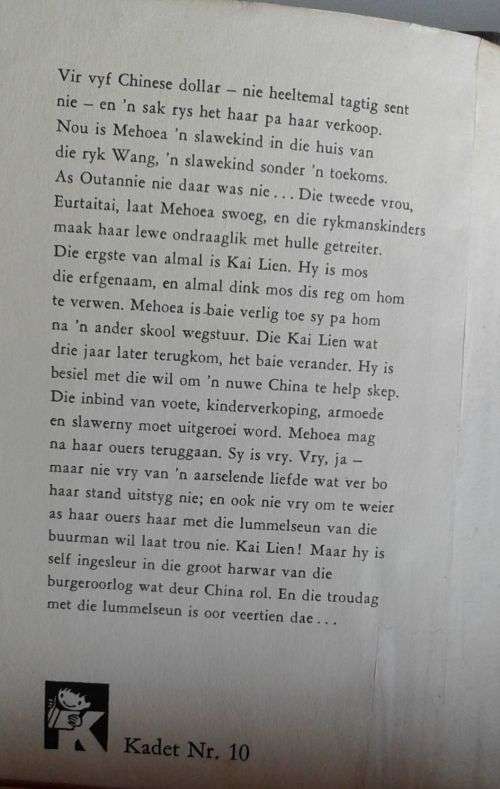 Vir vyf Chinese dollar – nie heeltemal tagtig sent
nie – en 'n sak rys het haar pa haar verkoop.
Nou is Mehoea 'n slawekind in die huis van
die ryk Wang, 'n slawekind sonder 'n toekoms.
As Outannie nie daar was nie ... Die tweede vrou,
Eurtaitai, laat Mehoea swoeg, en die rykmanskinders
maak haar lewe ondraaglik met hulle getreiter.
Die ergste van almal is Kai Lien. Hy is mos
die erfgenaam, en almal dink mos dis reg om hom
te verwen. Mehoea is baie verlig toe sy pa hom
na 'n ander skool wegstuur. Die Kai Lien wat
drie jaar later terugkom, het baie verander. Hy is
besiel met die wil om 'n nuwe China te help skep.
Die inbind van voete, kinderverkoping, armoede
en slawerny moet uitgeroei word. Mehoea mag
na haar ouers teruggaan. Sy is vry. Vry, ja –
maar nie vry van 'n aarselende liefde wat ver bo
haar stand uitstyg nie; en ook nie vry om te weier
as haar ouers haar met die lummelseun van die
buurman wil laat trou nie. Kai Lien! Maar hy is
self ingesleur in die groot harwar van die
burgeroorlog wat deur China rol. En die troudag
met die lummelseun is oor veertien dae ...
K
Kadet Nr. 10